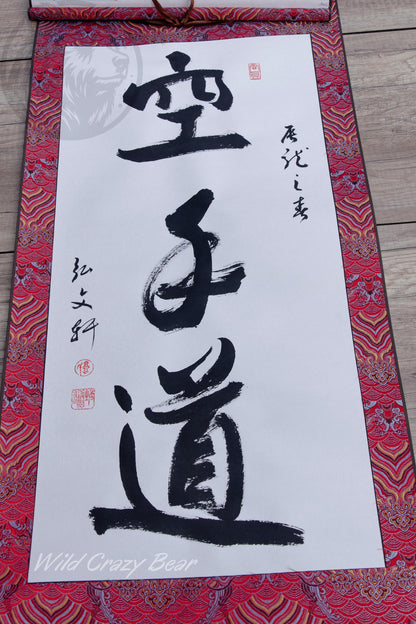 空手道
辰龙之春
弘文轩
Wild Crazy Bear